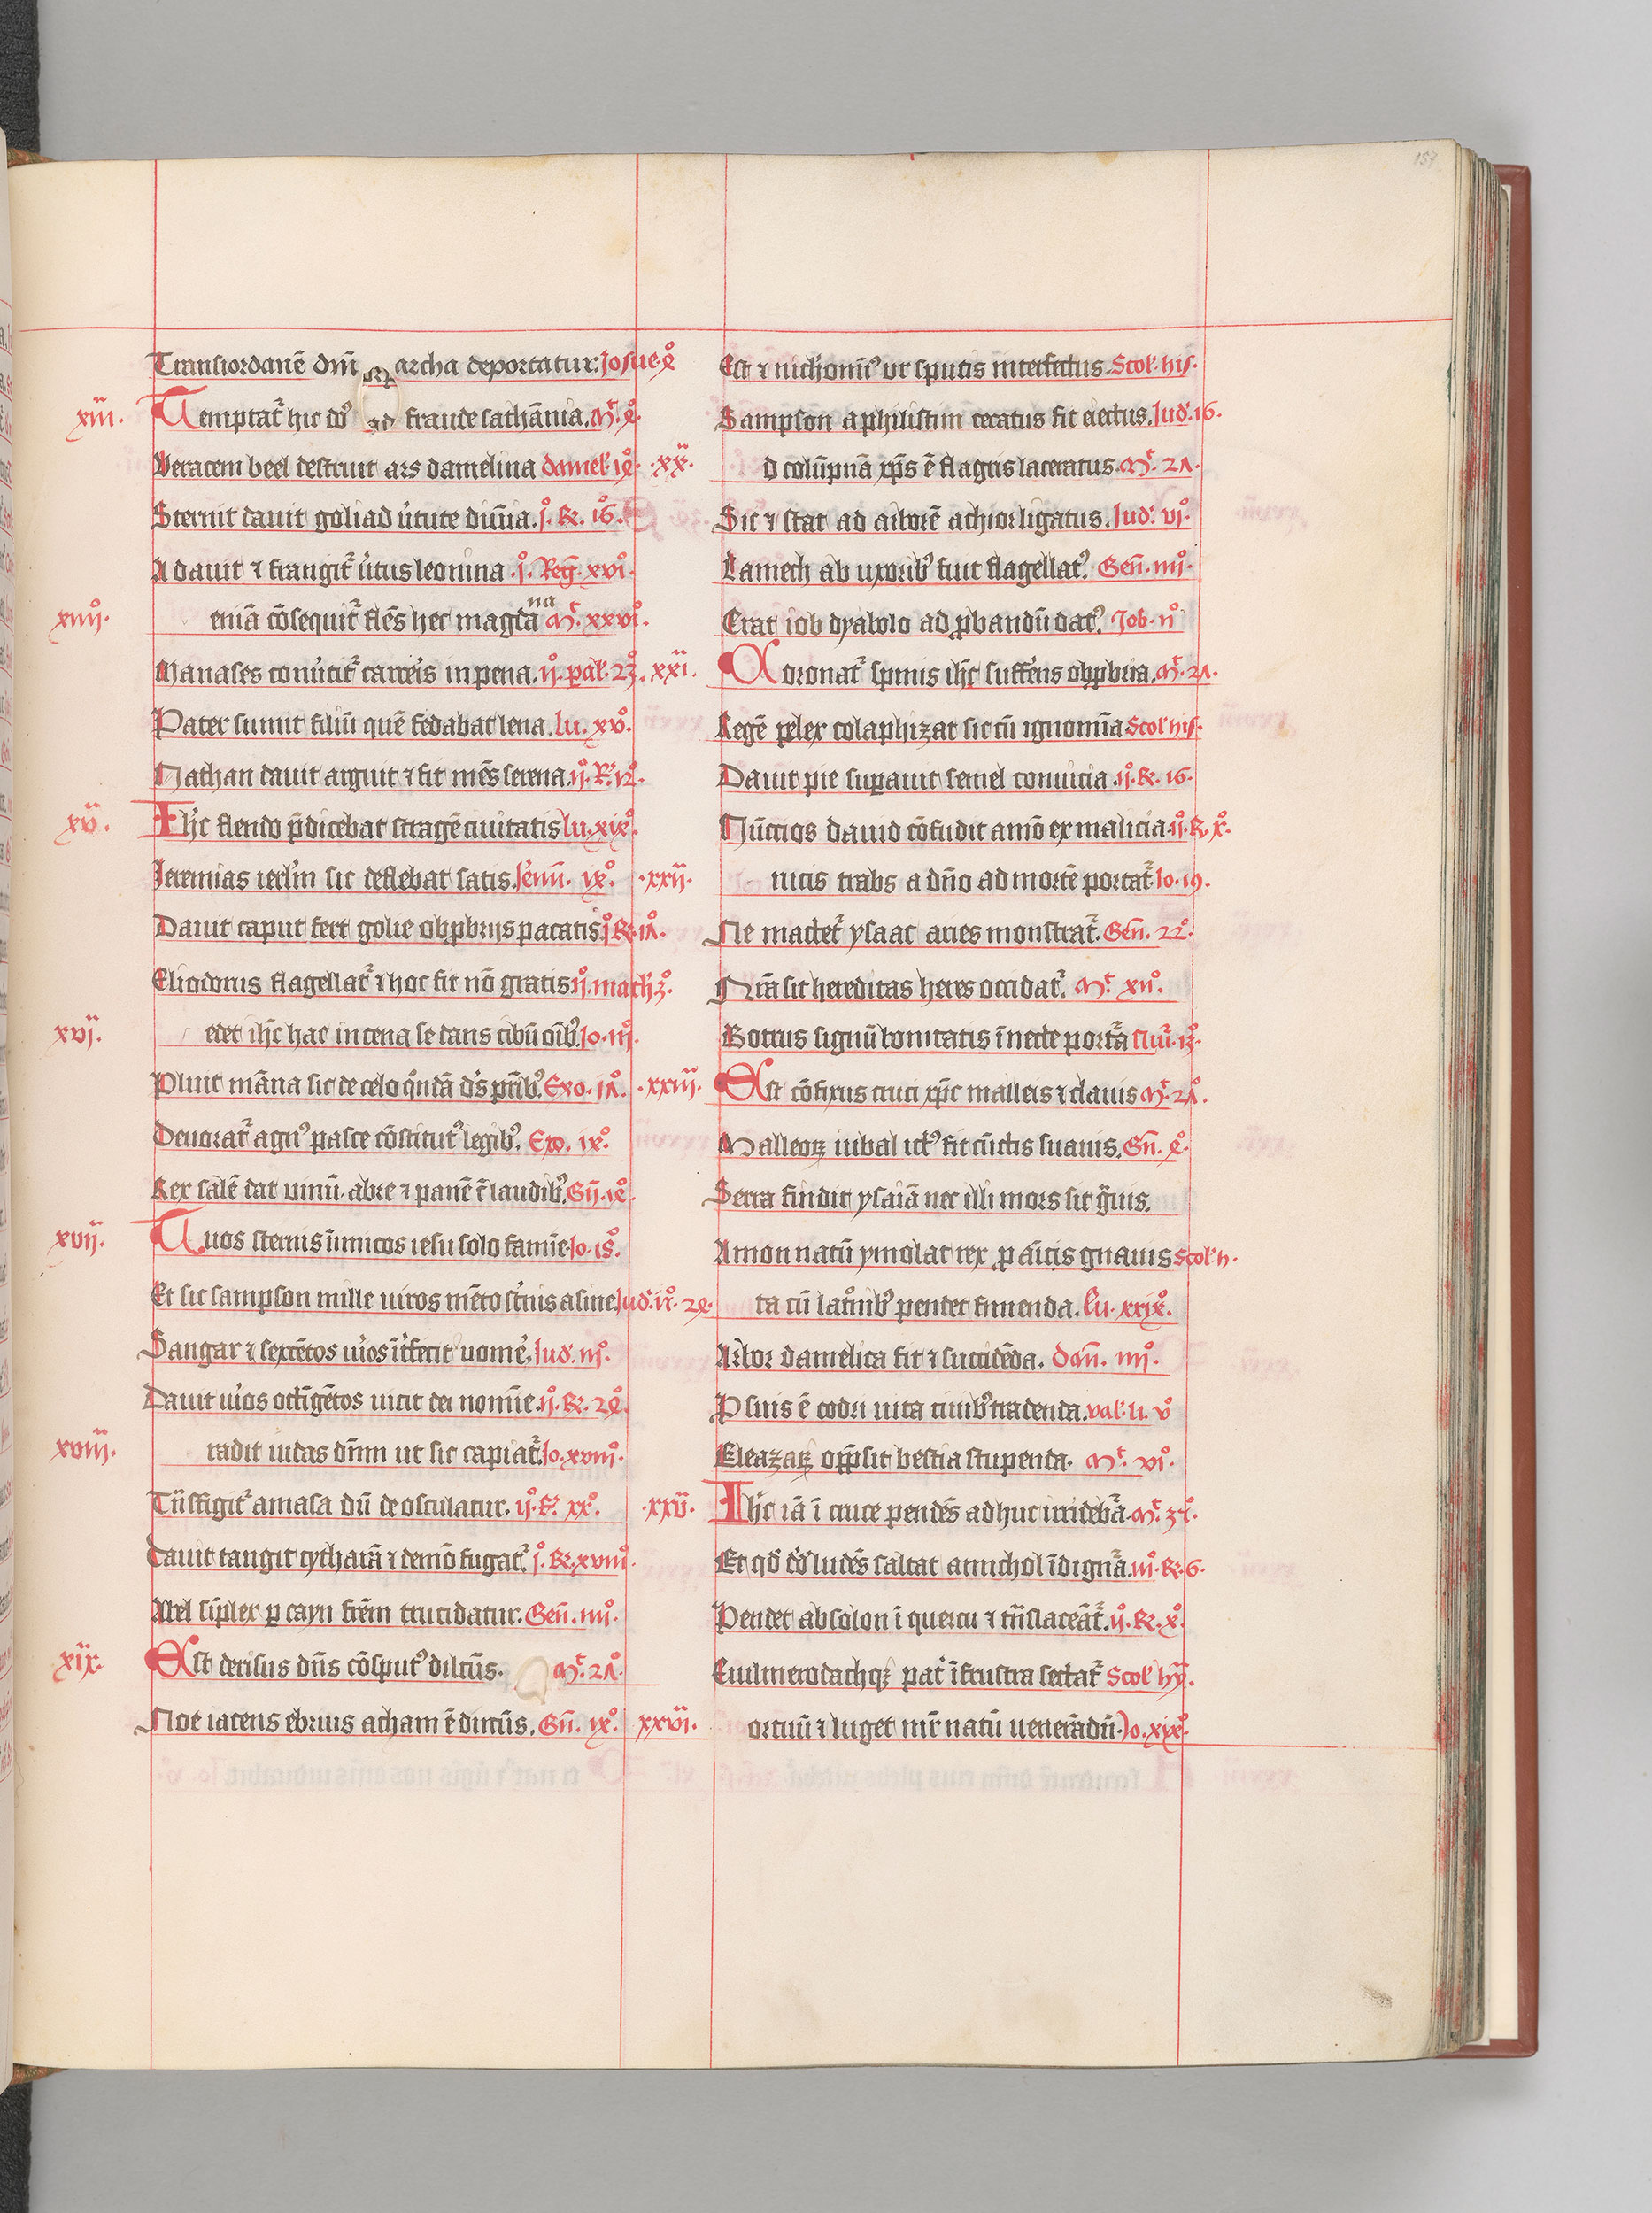 157
Transiordanē dn̄i archa deportatur. Josue. 4°
xiii. Temptat᷑ hic dꝰ fraude sathānia. Mt. 4°
Veracem beel destruit ars damelina daniel 14°
Sternit dauit goliad uʼtute diuīa. j°. R. 16°
A dauit ⁊ frangit᷑ uʼtus leonina. j°. Reg. xvi°
xiiij°. eniā cōsequit᷑ flēs hec magdana Mt. xxvi°
Manases conuʼtit᷑ carceīs in pena. ij. pal. 23°
Pater sumit filiū quē fedabat lena. lu. xv°
Nathan dauit arguit ⁊ fit mēs serena. ij°. R. 12°
xv. Ihc̄ flendo p̄dicebat stragē ciuitatis lu. xix°
Jeremias ierlʼm sic deflebat satis. Jerem̄. ix°
Dauit caput fert golie obprobrijs pacatis. j° R. 17°
Eliodorus flagellat᷑ ⁊ hoc fit nō gratis ij°. mach. 3°
xvi. edet ihc̄ hac in cena se dans cibū oībꝰ. Jo. iij°
Pluit māna sic de celo qͦndā dʼs pr̄ibꝰ. Exo. 17°
Deuorat᷑ agnꝰ pasce cōstitutꝰ legibꝰ. Exo. ix°
Rex salē dat uinū abre ⁊ panē ī laudibꝰ. Gn̄. 14°
xvij. Tuos sternis īimicos iesu solo famīe. Jo. 18°
Et sic sampson mille uiros mēto stʼnis asine Jud. 15°. 24.
Sangar ⁊ sexcētos uʼios īt͛fecit uomē. Jud. iij°
Dauit uʼios octīgētos uicit dei nomīe. ij. R. 24°
xviii. radit iudas dn̄m ut sic capiat᷑. Jo. xviii°
Tn̄sfigit᷑ amasa dū deosculatur. ij°. R. xx°
Dauit tangit cytharā ⁊ demō fugat᷑. j°. R. xviii°
Abel sīplex p cayn frēm trucidatur. Gen̄. iiij°
xix. Est derisus dn̄s cōsputꝰ diletūs. Mt. 27°
Noe iacens ebrius acham ē dirtūs. Gn̄. ix°
Est ⁊ nichomīꝰ vr sputis interfectus. Scol. his.
Sampson a philistim cecatus fit eiectus. Jud. 16.
xx. d colūpnā xp̄s ē flagris laceratus. Mt. 27.
Sic ⁊ stat ad arborē achior ligatus. Jud. vi°
Lamech ab uxoribꝰ fuit flagellatꝰ. Gen̄. iiij°
Erat iob dyabolo ad probandū datꝰ. Job. ii°
xxi. Coronat᷑ spinis ihc̄ suffe͛ns obprobria. Mt. 27.
Regē pelex colaphizat sic cū ignomīa Scol his.
Dauit pie superauit semel conuicia. ij°. R. 16.
Nūctios dauid cōfudit amō ex malicia. ij°. R. x°
xxii. rucis trabs a dn̄o ad mortē portat᷑. Jo. 19.
Ne mactet᷑ ysaac aries monstrat᷑. Gen̄. 22°
Nr̄a sit hereditas heres occidat᷑. Mt. xii°
Botrus signū bonitatis ī uecte porta᷑ nu͛. 13°
xxiii. Est cōfixus cruci xp̄c malleis ⁊ clauis Mt. 27°
Malleoꝝ iubal ictꝰ fit cūctis suauis. Gn̄. 4°
Serra findit ysaiā nec illi mors sit gͣuis.
Amon natū ymolat rex pro amicis gnauis Scol h.
ta cū latōibꝰ pendet finienda. Lu. xxix°
Arbor danielica fit ⁊ succidēda. Dan̄. iiij°
P suis ē codri uita ciuibꝰ tradenda. val. li. v°
Eleazaꝝ opp̄sit bestia stupenda. Mt. vi°
xxv. Ihc̄ iā ī cruce pendēs adhuc irrideba᷑. Mt. 37°
Et qd̓ dd̓ ludēs saltat a michol īdigna᷑. iii°. R. 6.
Pendet absolon ī quercu ⁊ tn̄slaceāt᷑. ij°. R. x°
Euilmerodachqꝫ pat͛ ī frustra sectat᷑ Scol hy.
xxvi. ortuū ⁊ luget mr̄ natū uenerādū. Jo. xix°